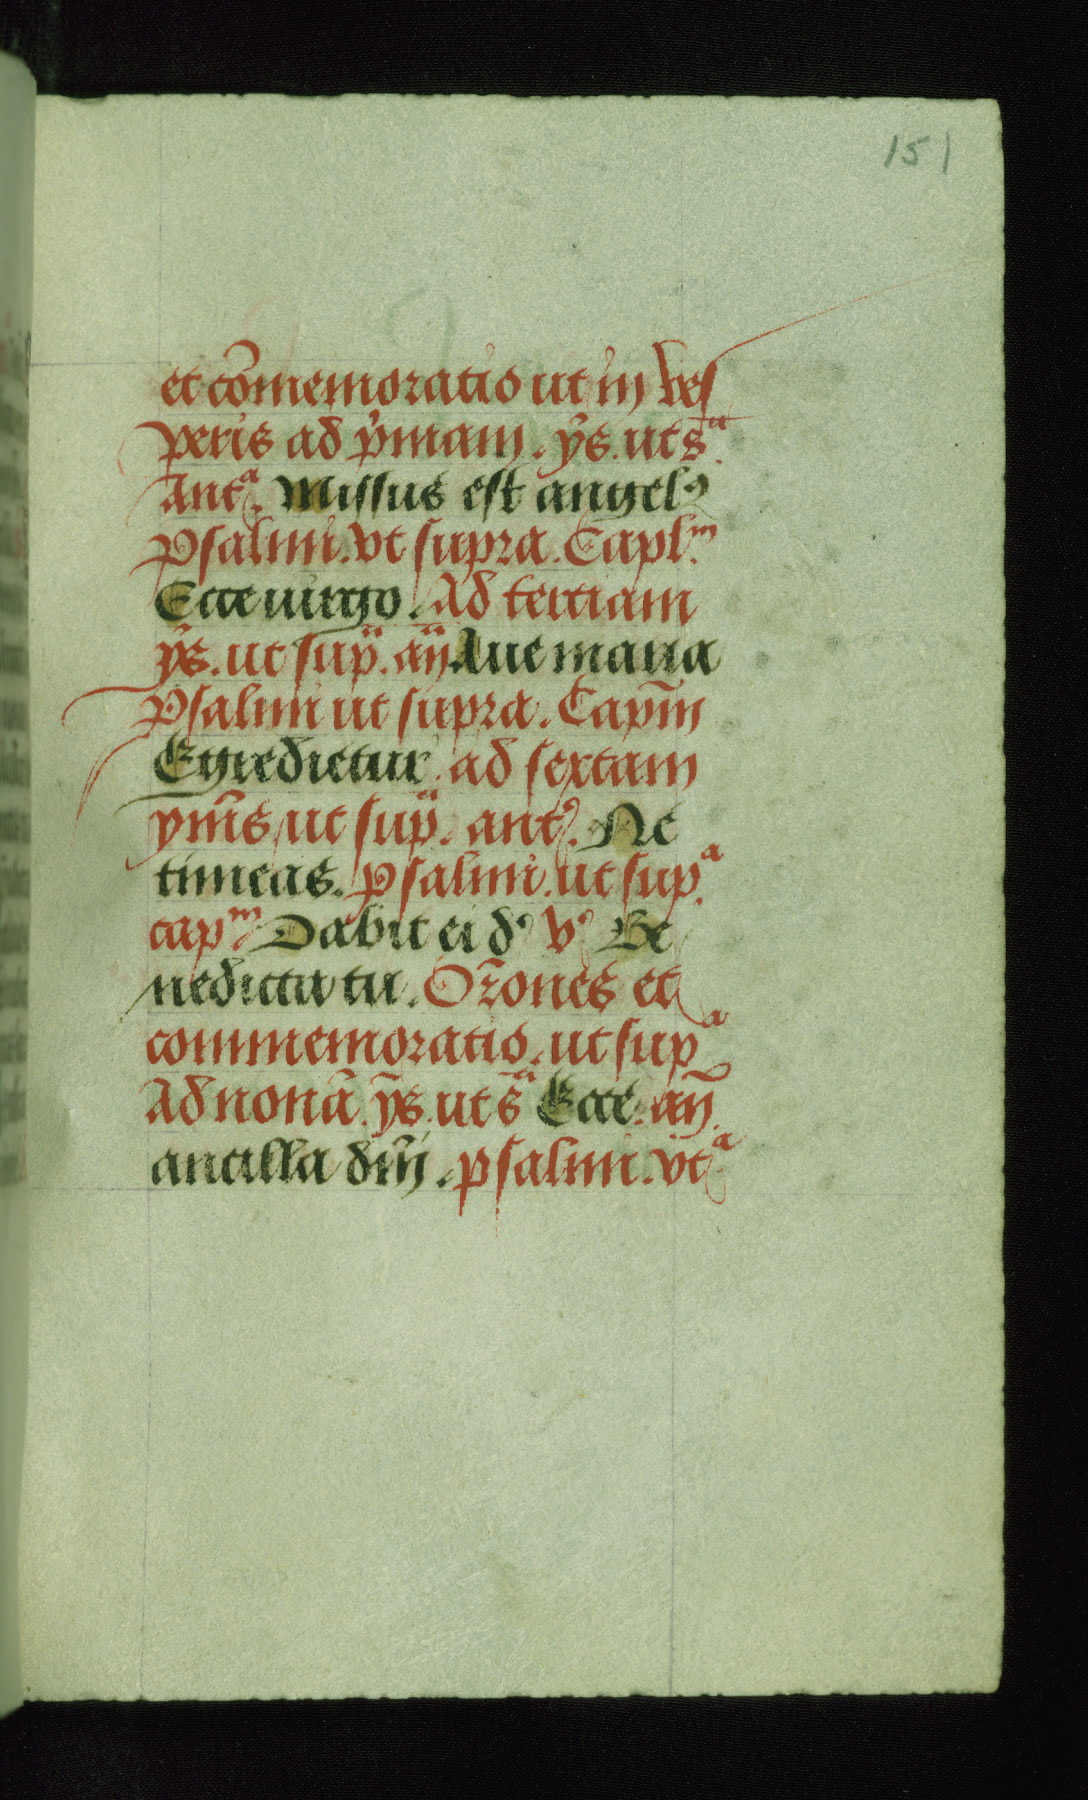 151
et cõmemoratio ut in ves
peris ad p̾mam. ẏs. ut sᵃ.
Antᵃ. Missus est angelꝰ
Psalmi. vt supra. Caplᵐ.
Ecce uirgo. Ad terciam
ẏs. ut sup̈. an̈ Aue maria
Psalmi ut supra. Cap̃m
Egredietur. ad sextam
ym̃s ut sup̈. antꝰ. Ne
timeas. Psalmi. ut supᵃ.
capᵐ Dabit ei dꝰ vꝰ Be
nedicta tu. Oz̃ones et
commemoratio. ut supᵃ
Ad nonã. ỹs. ut sᵃ Ecce. añ.
ancilla dm̃j. psalmi. vtᵃ